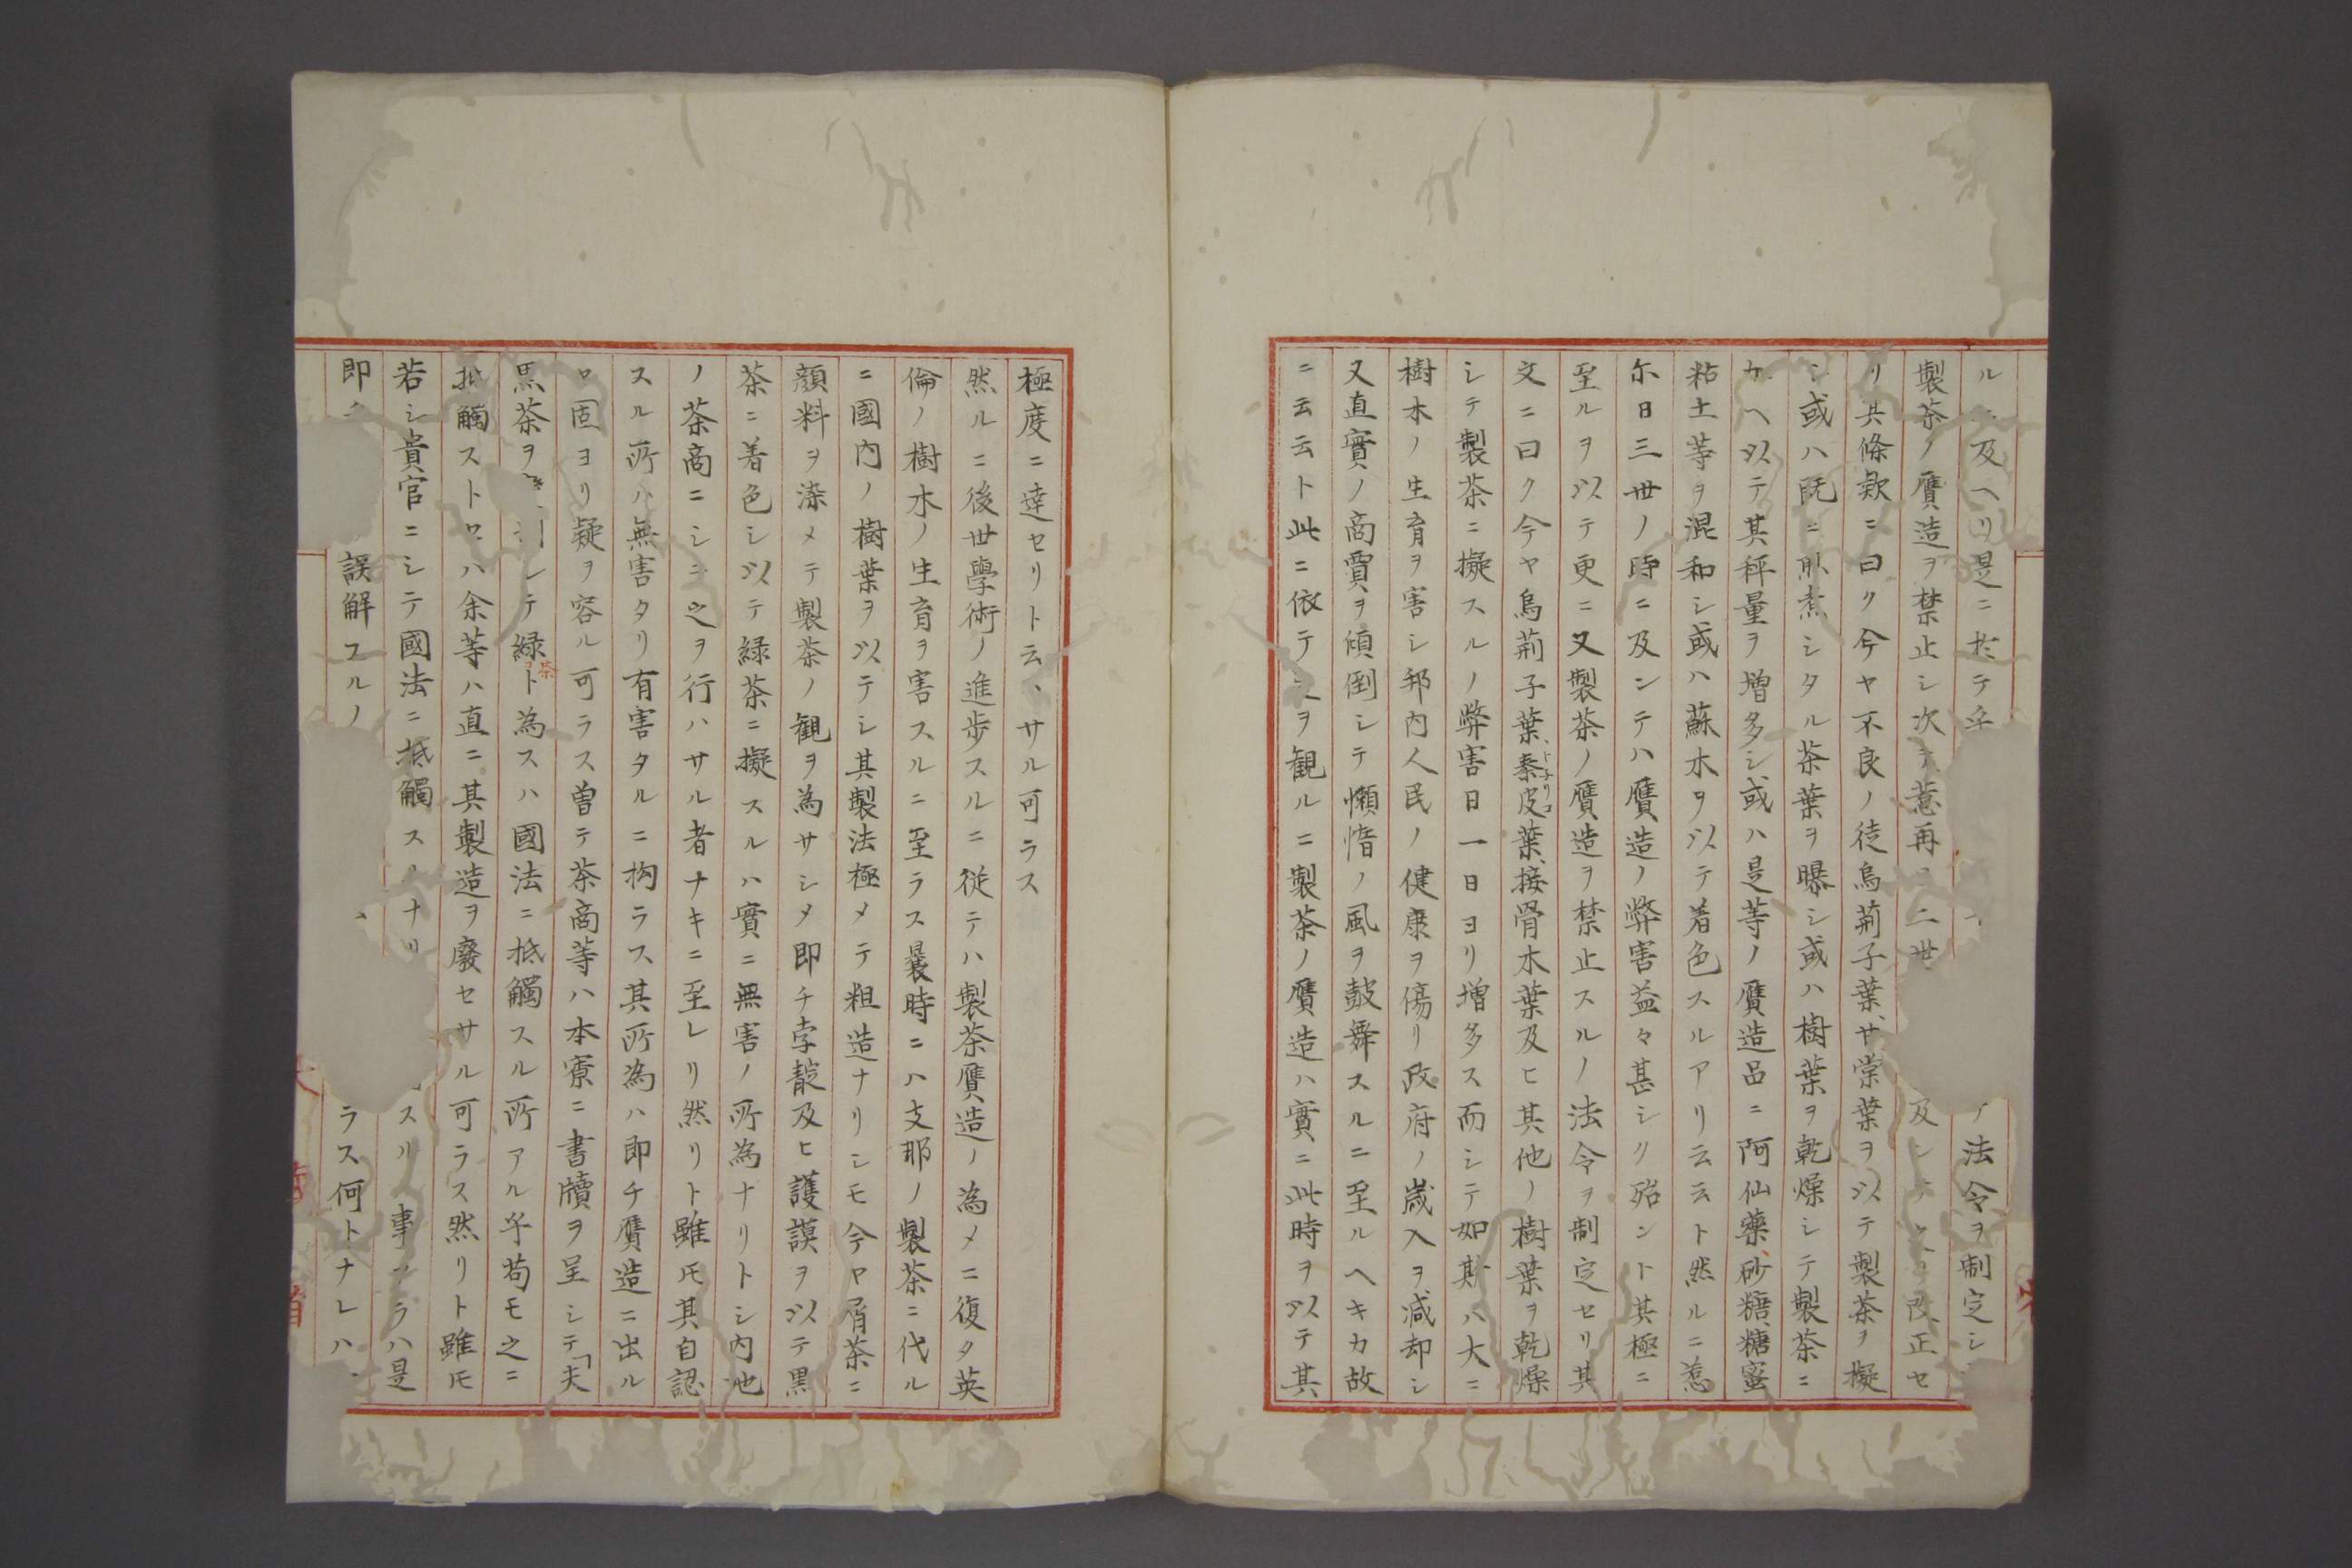 ル 及ヘリ是ニ於テ乎 法令ヲ制定シ
製茶ノ贋造ヲ禁止シ次テ惹再 二世 及ンテ 改正セ
リ其條款ニ曰ク今ヤ不良ノ徒烏荊子葉、サ棠葉ヲ以テ製茶ヲ擬
シ或ハ既ニ煎煮シタル茶葉ヲ曝シ或ハ樹葉ヲ乾燥シテ製茶ニ
加ヘ以テ其秤量ヲ増多シ或ハ是等ノ贋造品ニ阿仙藥、砂糖、糖蜜
粘土等ヲ混和シ或ハ蘇木ヲ以テ着色スルアリ云云ト然ルニ惹
尓日三世ノ時ニ及ンテハ贋造ノ弊害益々甚シク殆ント其極ニ
至ルヲ以テ更ニ又製茶ノ贋造ヲ禁止スルノ法令ヲ制定セリ其
文ニ曰ク今ヤ烏荊子葉、秦皮葉、接骨木葉及ヒ其他ノ樹葉ヲ乾燥
トネリコ
シテ製茶ニ擬スルノ弊害日一日ヨリ増多ス而シテ如斯ハ大ニ
樹木ノ生育ヲ害シ邦内人民ノ健康ヲ傷リ政府ノ歳入ヲ減却シ
又直實ノ商賈ヲ傾倒シテ懶惰ノ風ヲ鼓舞スルニ至ルヘキカ故
ニ云云ト此ニ依テ之ヲ観ルニ製茶ノ贋造ハ實ニ此時ヲ以テ其
極度ニ達セリト云、サル可ラス
然ルニ後世學術ノ進歩スルニ従テハ製茶贋造ノ為メニ復タ英
倫ノ樹木ノ生育ヲ害スルニ至ラス曩時ニハ支那ノ製茶ニ代ル
ニ國内ノ樹葉ヲ以テシ其製法極メテ粗造ナリシモ今ヤ屑茶ニ
顔料ヲ染メテ製茶ノ観ヲ為サシメ即チ孛靛及ヒ護謨ヲ以テ黒
茶ニ着色シ以テ緑茶ニ擬スルハ實ニ無害ノ所為ナリトシ内地
ノ茶商ニシテ之ヲ行ハサル者ナキニ至レリ然リト雖𪜈其自認
スル所ハ無害タリ有害タルニ拘ラス其所為ハ即チ贋造ニ出ル
ヿ固ヨリ疑ヲ容ル可ラス曽テ茶商等ハ本寮ニ書牘ヲ呈シテ「夫
黒茶ヲ シテ緑茶ト為スハ國法ニ抵觸スル所アル乎苟モ之ニ
抵觸ストセハ余等ハ直ニ其製造ヲ廢セサル可ラス然リト雖𪜈
若シ貴官ニシテ國法ニ抵觸スルナリ スル事アラハ是
即チ 誤解スルノ ラス何トナレハ